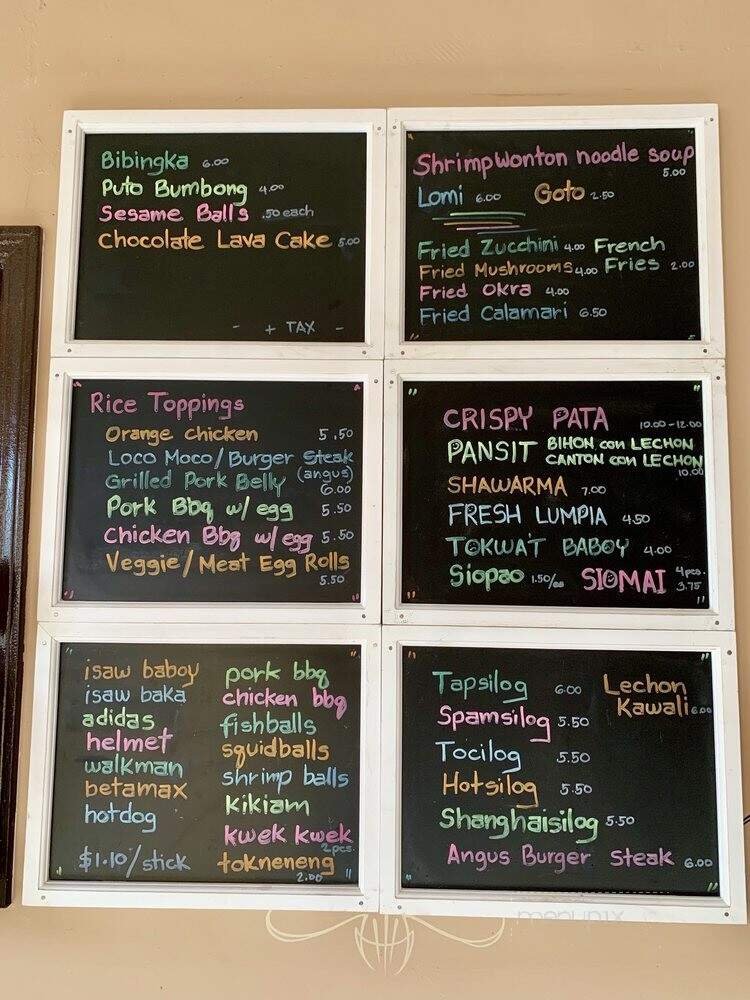 Bibingka 6.00
Puto Bumbong 4.00
Sesame Balls .50 each
Chocolate Lava Cake 5.00
- + TAX -
Shrimp Wonton noodle soup
5.00
Lomi 6.00 Goto 2.50
Fried Zucchini 4.00 French
Fried Mushrooms 4.00 Fries 2.00
Fried Okra 4.00
Fried Calamari 6.50
Rice Toppings
Orange chicken 5.50
Loco Moco/Burger Steak
Grilled Pork Belly (angus)
6.00
Pork Bbq w/ egg 5.50
Chicken Bbq w/ egg 5.50
Veggie/Meat Egg Rolls
5.50
CRISPY PATA 10.00-12.00
PANSIT BIHON con LECHON
CANTON con LECHON
10.00
SHAWARMA 7.00
FRESH LUMPIA 4.50
TOKWA'T BABOY 4.00
Siopao 1.50/ea SIOMAI 4pcs.
3.75
isaw baboy pork bbq
isaw baka chicken bbq
adidas fishballs
helmet squidballs
walkman shrimp balls
betamax kikiam
hotdog kwek kwek
2pcs.
$1.10/stick tokneneng
2.00
Tapsilog 6.00 Lechon
Kawali 6.00
Spamsilog 5.50
Tocilog 5.50
Hotsilog 5.50
Shanghaisilog 5.50
Angus Burger Steak 6.00
menupix